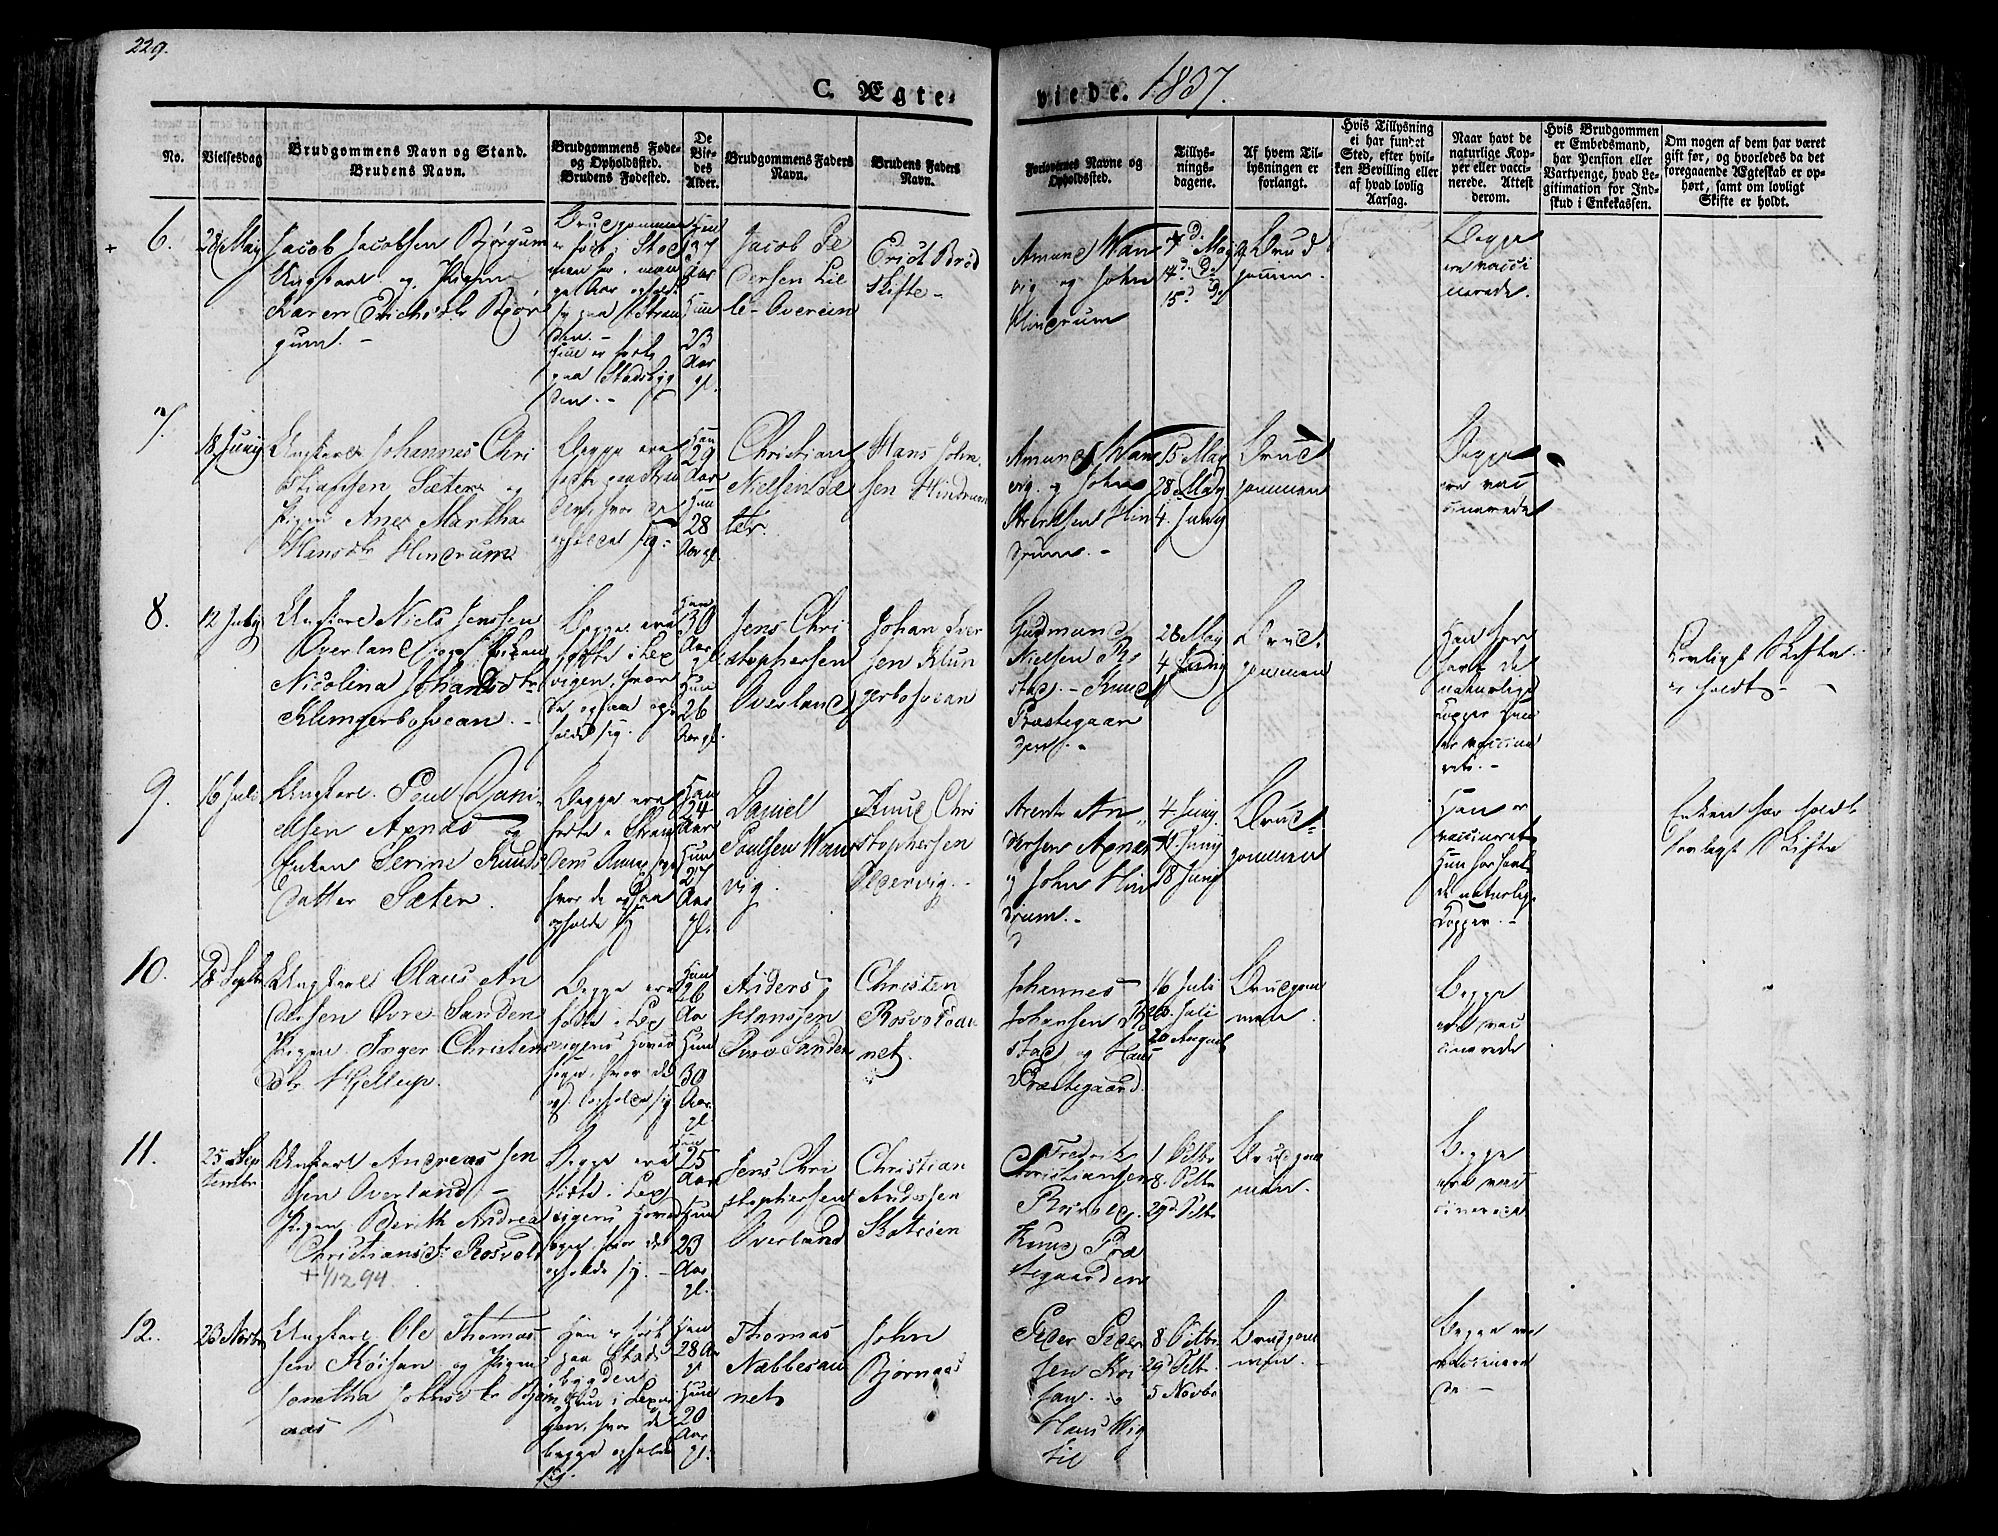 229.
C. Ægte-
viede. 1837.
No.
Vielsesdag
Brudgommens Navn og Stand.
Brudens Navn.
Brudgommens Føde-
og Opholdssted.
Brudens Fødested.
De
Vie-
des
Alder.
Brudgommens Faders
Navn.
Brudens Faders
Navn.
Forlovernes Navne og
Opholdssted.
Tillys-
nings-
dagene.
Af hvem Til-
lysningen er
forlangt.
Hvis Tillysning
ei har fundet
Sted, efter hvil-
ken Bevilling eller
af hvad lovlig
Aarsag.
Naar havt de
naturlige Kop-
per eller vacci-
nerede. Attest
derom.
Hvis Brudgommen
er Embedsmand,
har Pension eller
Vartpenge, hvad Le-
gitimation for Ind-
skud i Enkekassen.
Om nogen af dem har været
gift før, og hvorledes da det
foregaaende Ægteskab er op-
hørt, samt om lovligt
Skifte er holdt.
+ 6.
28 May
Jacob Jacobsen Bjørgum
og Pigen
Karen Erichsdtr Bjør
gum. -
Brudgommen
er født i
Hun er født
paa Stadsbyg
den. -
Han
37
Aar
Hun
23
Aar
gl.
Jacob Pe
dersen Lil
le-Overein
Erich Brød
skifte -
Amund Wan
vig og John
Hindrum
7 d. May
14 d. Do
15 d. Do
Brud
gommen.
Begge
ere vacci
nerede.
7.
18 Juny
Ungkarl Johannes Chri
stiansen Sæter og
Pigen Ane Martha
Hansdtr Hindrum
Begge ere
fødte paa Stran
den, hvor de
opholde sig.
Han
29
Aar
Hun
28
Aar gl.
Christian
Nielsen Sæ
ter.
Hans John
sen Hindrum
Amund Wan
vig og John
Arentsen Hin
drum. -
15 May
28 May
4. Juny
Brud
gommen
Begge
ere vac
cinerede
8.
12 July
Ungkarl Niels Jenssen
Overland og Enken
Nicolina Johansdtr
Klungerbosvean. -
Begge ere
fødte i Lex
vigen, hvor
de ogsaa op
holde sig.
Han
30
Aar
gl.
Hun
26
Aar gl.
Jens Chri
stophersen
Overland
Johan Iver
sen Klun
gerbosvean
Gudmund
Nielsen Rø
stad. - Knud
Præstegaar
den. -
28 May
4 Juny
Brud
gommen
Han har
havt de
naturlige
Kopper Hun
er vaccine
ret. -
Lovligt Skifte
er holdt -
9.
16 Juli
Ungkarl Poul Dani-
elsen Apnæs og
Enken Serine Knuds
Datter Sæter.
Begge ere
fødte i Stran
dens Annex
hvor de ogsaa
opholde sig
Han
24
Aar
Hun
27
Aar
gl.
Daniel
Poulsen Wan
vig.
Knud Chri
stophersen
Oldervig.
Arent An
dersen Apnæs
og John Hin
drum. -
4 Juny.
11 Juny
18 Juny
Brud-
gommen
Han er
vaccineret
Hun har havt
de naturlige
Kopper. -
Enken har holdt
lovligt Skifte
10.
28 Septbr
Ungkarl Olaus An
dersen Øvre-Sanden
Pigen Inger Christens
dtr Hjellup.
Begge ere
fødte i Lex
vigens Hoved
sogn, hvor de
opholde sig
Han
26
Aar
Hun
30
Aar.
gl.
Anders
Hanssen
Øvre Sanden
Christen
Rosvoldau
net.
Johannes
Johansen Rø
stad og Hans
Præstegaard.
16 Juli
Juli
20 August
Brudgom
men.
Begge
ere vac
cinerede
11.
25 Sep
tembr
Ungkarl Andreas Jen
sen Overland -
Pigen Berith Andrea
Christiansdtr Rosvold
+ 1/12 94.
Begge ere
fødte i Lex
vigens Hoved
sogn, hvor de
opholde sig. -
Han
25
Aar
Hun
23
Aar
gl.
Jens Chri
stophersen
Overland
Christian
Andersen
Skatrøen
Fredrik
Christiansen
Knud Præ
stegaarden
1 Octbr
8. Octbr
29d Octbr
Brudgom
men.
Begge
ere vac
cinerede
12.
23 Novbr
Ungkarl Ole Thomas-
sen Køisan og Pigen
Jonetha Johnsdtr Bjørn
aas
Han er født
paa Stads
bygden
Hun i Lexvi
gen, hvor de
begge opholde
sig.
Han
28 Aar
gl
Hun
20
Aar
gl.
Thomas
Nabbesau
net
John
Bjørnaas
Peder Peder
sen Køi
san. og
Hans Wig
til
8 Octbr
29d Octbr.
5 Novbr
Brudgom
men.
Begge ere
vaccinere
de -